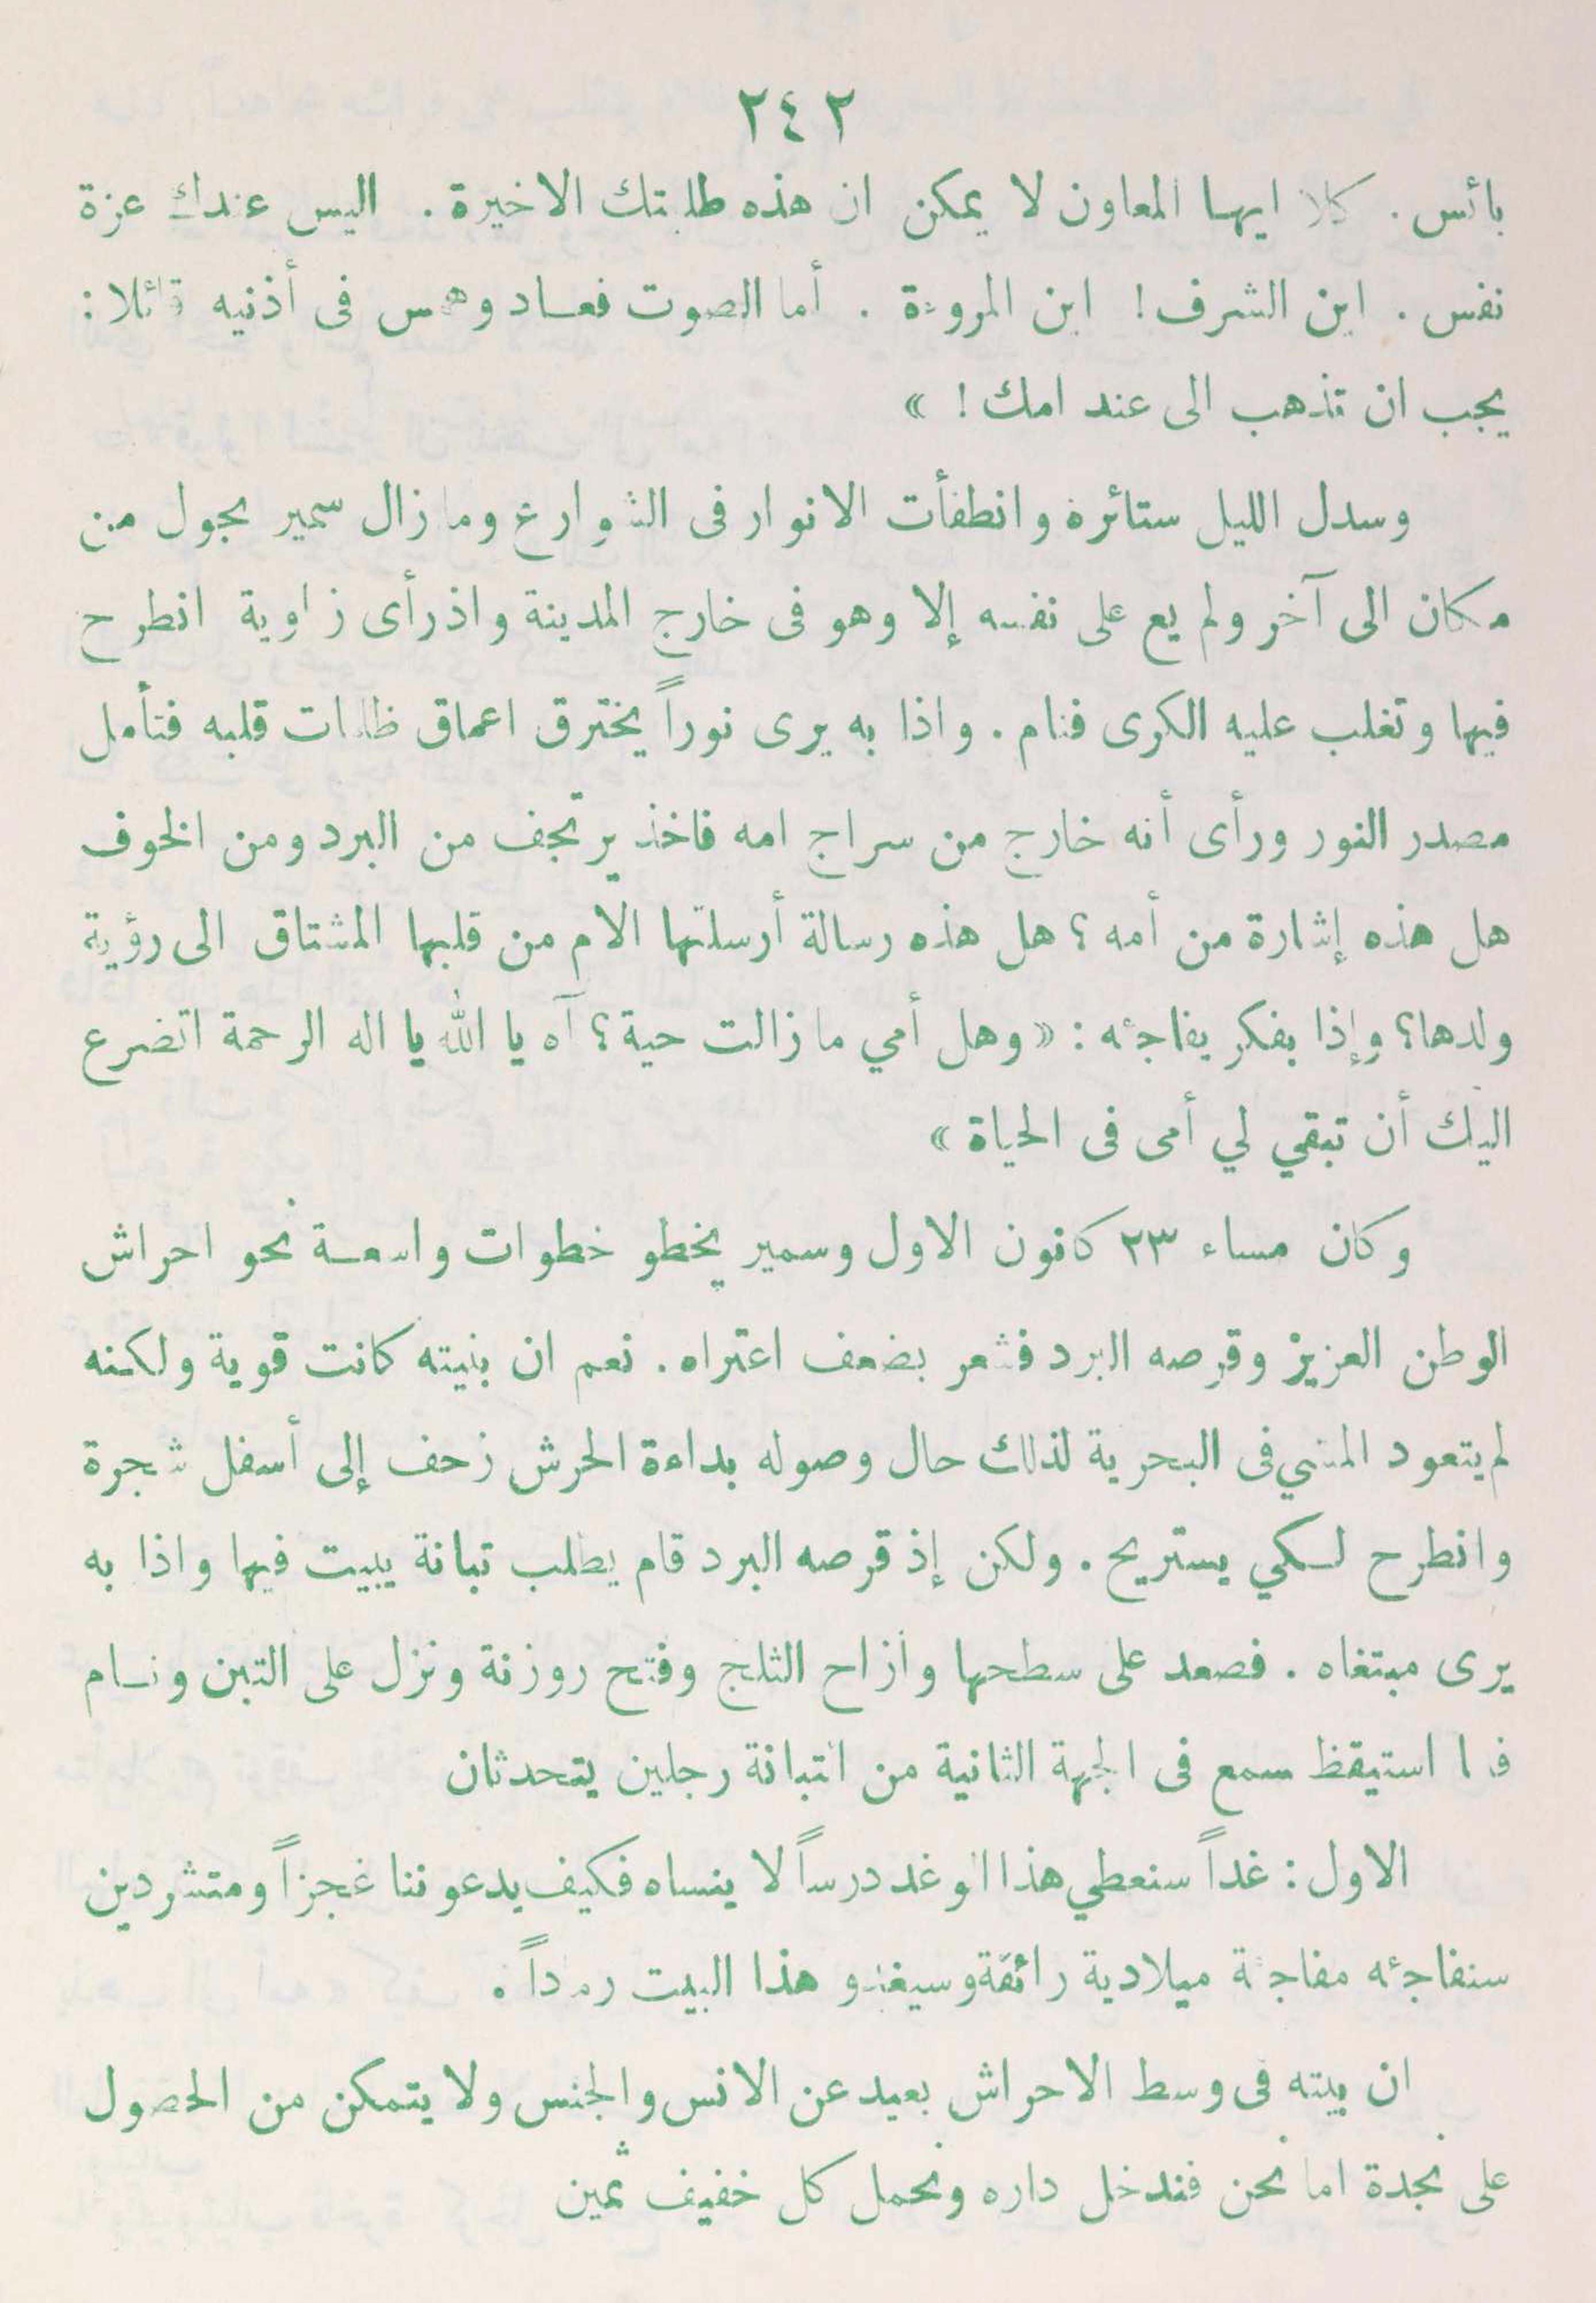 ٢٤٢
بائس . كلا ايها المعاون لا يمكن ان هذه طلبتك الاخيرة . اليس عندك عزة
نفس . اين الشرف ! اين المروءة . أما الصوت فعاد وهمس فى أذنيه قائلا :
يجب ان تذهب الى عند امك ! »
وسدل الليل ستائره وانطفأت الانوار فى الشوارع وما زال سمير يجول من
مكان الى آخر ولم يع على نفسه إلا وهو فى خارج المدينة واذ رأى زاوية انطرح
فيها وتغلب عليه الكرى فنام . واذا به يرى نوراً يخترق اعماق ظلمات قلبه فتأمل
مصدر النور ورأى أنه خارج من سراج امه فاخذ يرتجف من البرد ومن الخوف
هل هذه إشارة من أمه ؟ هل هذه رسالة أرسلتها الام من قلبها المشتاق الى رؤية
ولدها؟ وإذا بفكر يفاجئه : « وهل أمي ما زالت حية ؟ آه يا الله يا اله الرحمة اتضرع
اليك أن تبقي لي أمى فى الحياة »
وكان مساء ٢٣ كانون الاول وسمير يخطو خطوات واسعة نحو احراش
الوطن العزيز وقرصه البرد فشعر بضعف اعتراه . نعم ان بنيته كانت قوية ولكنه
لم يتعود المشي فى البحرية لذلك حال وصوله بداءة الحرش زحف إلى أسفل شجرة
وانطرح لكي يستريح . ولكن إذ قرصه البرد قام يطلب تبانة يبيت فيها واذا به
يرى مبتغاه . فصعد على سطحها وأزاح الثلج وفتح روزنة ونزل على التبن ونام
فلما استيقظ سمع فى الجهة الثانية من التبانة رجلين يتحدثان
الاول : غداً سنعطي هذا الوغد درساً لا ينساه فكيف يدعوننا غجراً ومتشردين
سنفاجئه مفاجئة ميلادية رائقة وسيغدو هذا البيت رمداً .
ان بيته فى وسط الاحراش بعيد عن الانس والجنس ولا يتمكن من الحصول
على نجدة اما نحن فندخل داره ونحمل كل خفيف ثمين